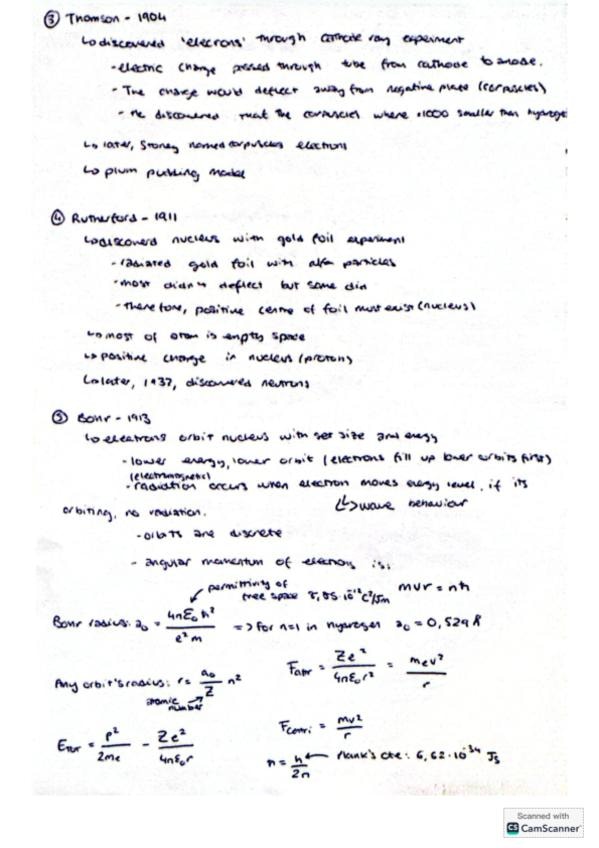 ③ Thomson - 1904
↳ discovered 'elecrons' through cathode ray experiment
- electric charge passed through tube from cathode to anode.
- The charge would deflect away from negative plate (corpuscles)
- He discovered that the corpuscles where ×1000 smaller than hydrogen
↳ later, Stoney named corpuscles electrons
↳ plum pudding model
④ Rutherford - 1911
↳ discoverd nucleus with gold foil experiment
- radiated gold foil with alfa particles
- most didn't deflect but some did
- therefore, positive centre of foil must exist (nucleus)
↳ most of atom is empty space
↳ positive charge in nucleus (protons)
↳ later, 1937, discovered neutrons
⑤ Bohr - 1913
↳ electrons orbit nucleus with set size and energy
- lower energy, lower orbit (electrons fill up lower orbits first)
(electromagnetic)
- radiation occurs when electron moves energy level, if its
orbiting, no radiation. ↳ wave behaviour
- orbits are discrete
- angular momentum of electrons is:
permittivity of
free space 8,85·10⁻¹² C²/Jm mvr = nħ
Bohr radius: a₀ = 4πε₀ħ² / e²m => for n=1 in hydrogen a₀ = 0,529 Å
Any orbit's radius: r = a₀/Z n² Fatr = Ze²/4πε₀r² = mev²/r
atomic number
Fcentri = mv²/r
Etot = p²/2me - Ze²/4πε₀r
ħ = h/2π ← Plank's cte: 6,62·10⁻³⁴ Js
Scanned with
CS CamScanner